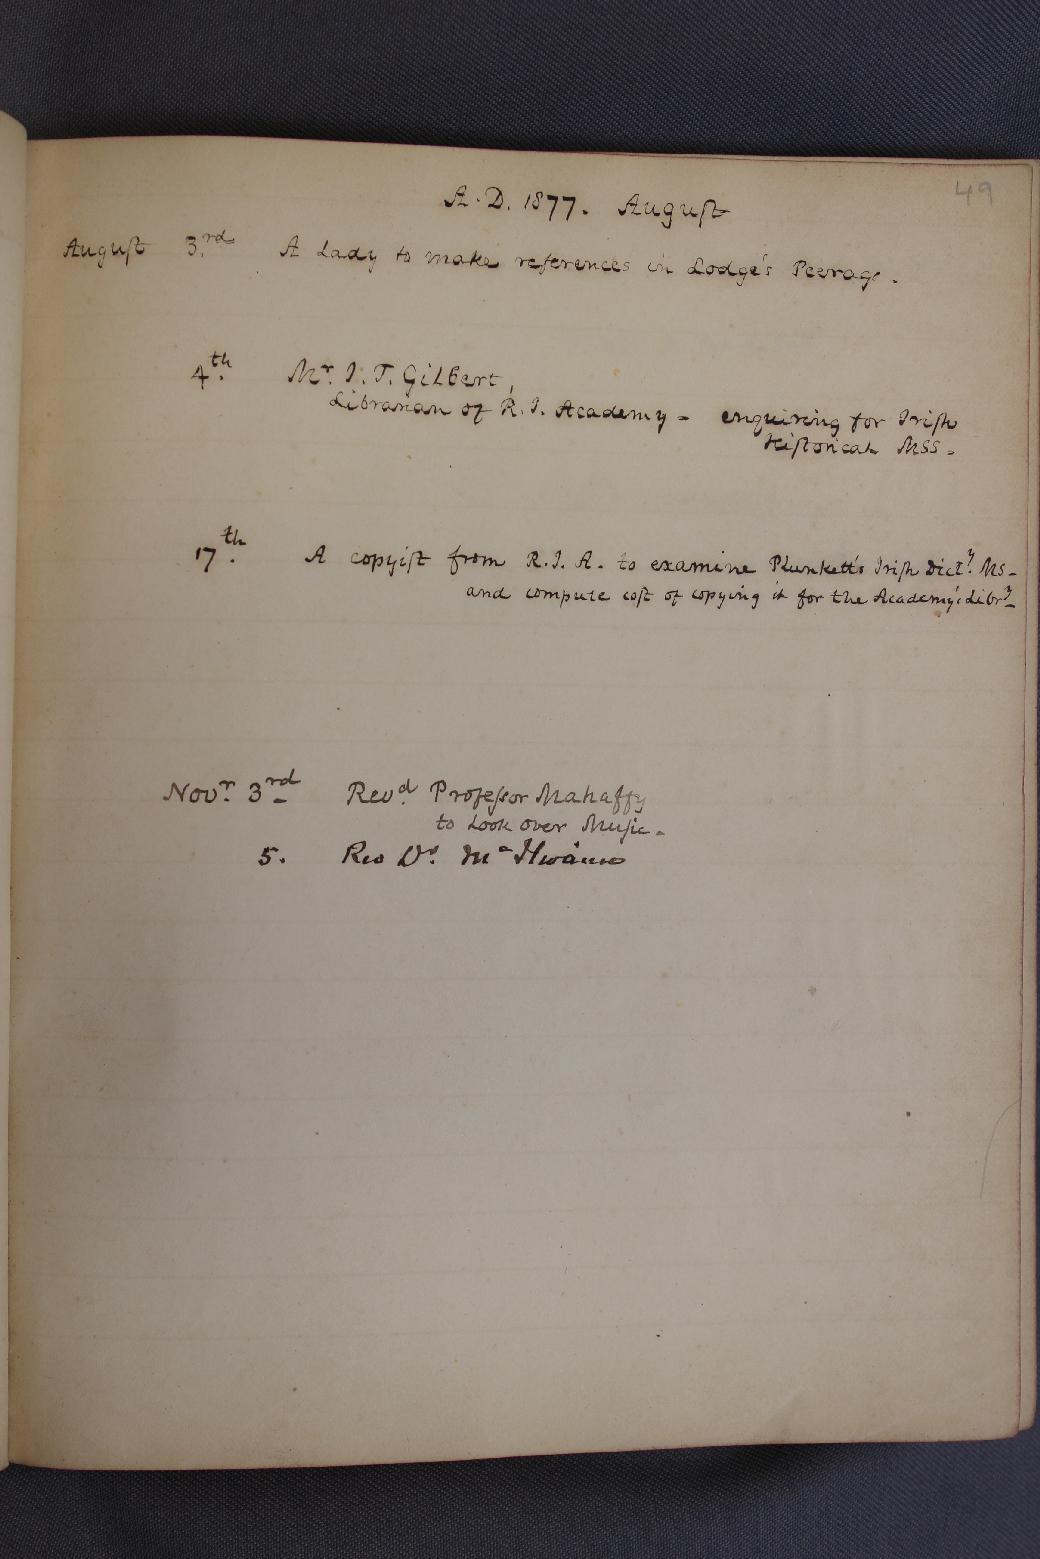 49
A. D. 1877. Auguſt
Auguſt 3.rd A Lady to make references in Lodge's Peerage.
4th. Mr. J. T. Gilbert,
Librarian of R. I. Academy - enquiring for Iriſh
Hiſtorical MSS.
17th. A copyiſt from R. I. A. to examine Plunkett's Iriſh Dicty. MS-
and compute coſt of copying it for the Academy's Libry-
Novr. 3rd Revd. Profeſsor Mahaffy
to Look over Muſic.
5. Rev Dr. McIlwaine